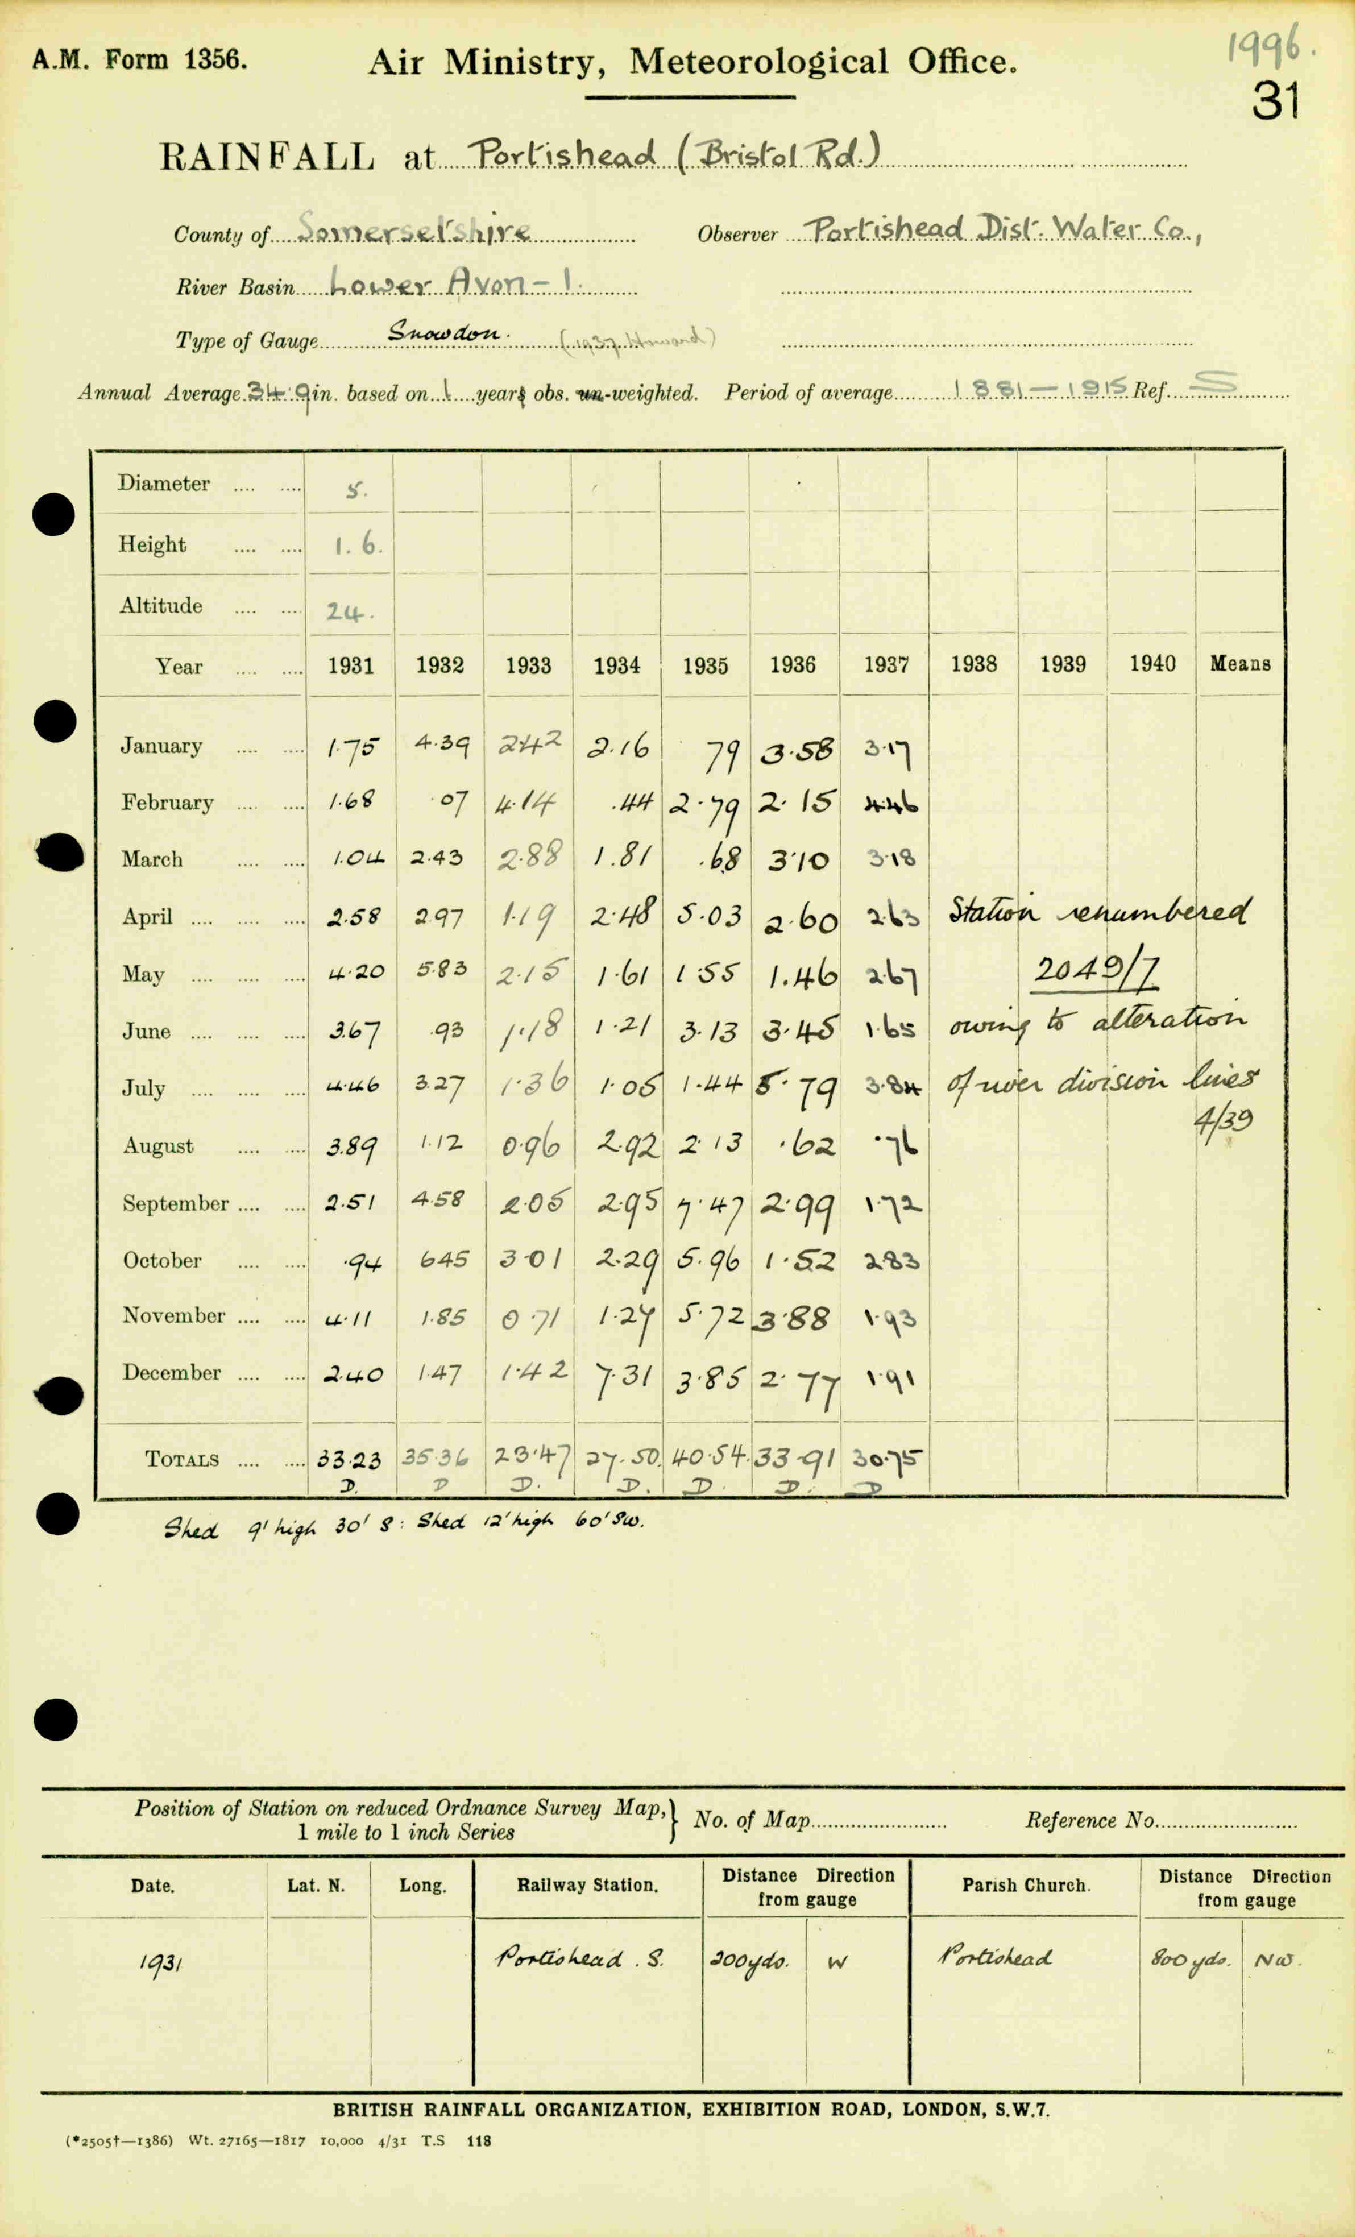 A.M. Form 1356. Air Ministry, Meteorological Office. 1996.
31
RAINFALL at Portishead (Bristol Rd.)
County of Somersetshire Observer Portishead Dist. Water Co.,
River Basin Lower Avon - 1.
Type of Gauge Snowdon. (1937 Howard)
Annual Average 34.9 in. based on 1 years obs. un-weighted. Period of average 1881-1915 Ref. S
Diameter .... .... 5.
Height .... .... 1.6.
Altitude .... .... 24.
Year .... .... 1931 1932 1933 1934 1935 1936 1937 1938 1939 1940 Means
January .... .... 1.75 4.39 2.42 2.16 79 3.58 3.17
February .... .... 1.68 .07 4.14 .44 2.79 2.15 4.46
March .... .... 1.04 2.43 2.88 1.81 .68 3.10 3.18
April .... .... .... 2.58 2.97 1.19 2.48 5.03 2.60 2.63 Station renumbered
May .... .... .... 4.20 5.83 2.15 1.61 1.55 1.46 2.67 2049/7
June .... .... .... 3.67 .93 1.18 1.21 3.13 3.45 1.65 owing to alteration
July .... .... .... 4.46 3.27 1.36 1.05 1.44 5.79 3.84 of river division lines
August .... .... 3.89 1.12 0.96 2.92 2.13 .62 .76 4/39
September .... .... 2.51 4.58 2.05 2.95 7.47 2.99 1.72
October .... .... .94 6.45 3.01 2.29 5.96 1.52 2.83
November .... .... 4.11 1.85 0.71 1.27 5.72 3.88 1.93
December .... .... 2.40 1.47 1.42 7.31 3.85 2.77 1.91
TOTALS .... .... 33.23 35.36 23.47 27.50. 40.54. 33.91 30.75
D. D D. D. D. D. D
Shed 9' high 30' S : Shed 12' high 60' SW.
Position of Station on reduced Ordnance Survey Map, } No. of Map Reference No.
1 mile to 1 inch Series
Date. Lat. N. Long. Railway Station. Distance Direction from gauge Parish Church. Distance Direction from gauge
1931 Portishead . S. 200yds. W Portishead 800 yds. NW.
BRITISH RAINFALL ORGANIZATION, EXHIBITION ROAD, LONDON, S.W.7.
(*2505†—1386) Wt. 27165—1817 10,000 4/31 T.S 118